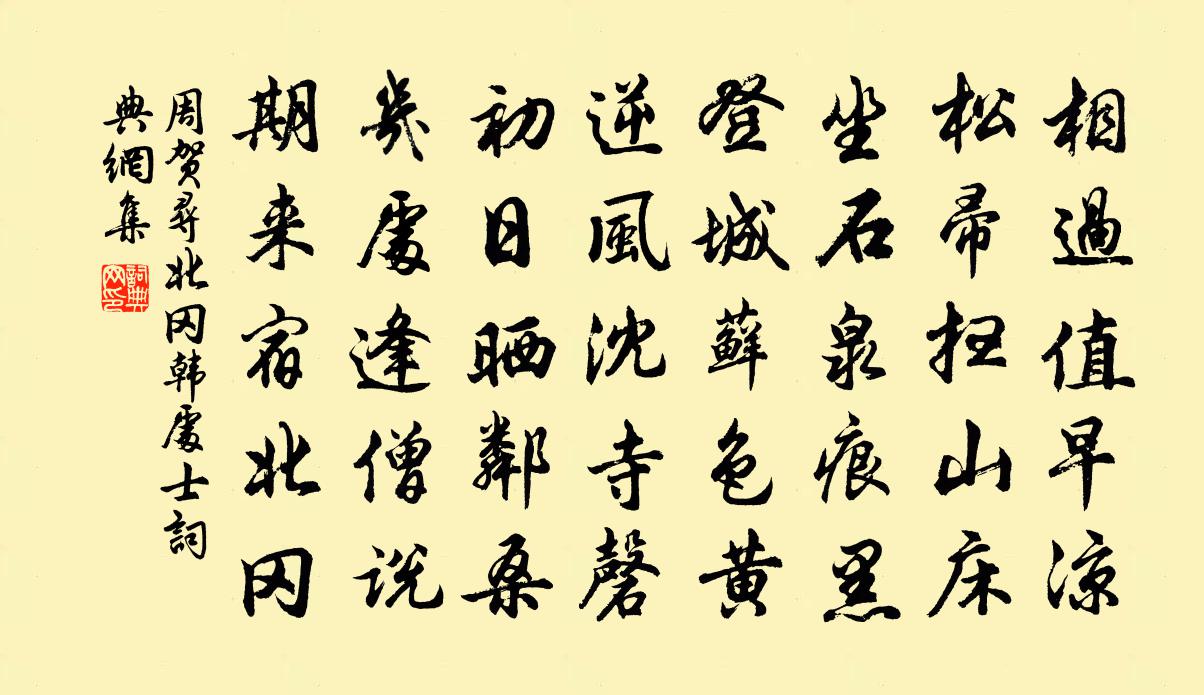 相過值早凉
松帚掃山床
坐石泉痕黑
登城蘚色黄
逆風沈寺磬
初日晒鄰桑
幾處逢僧説
期来宿北冈
周贺尋北冈韩處士詞
典網集
詞典网印